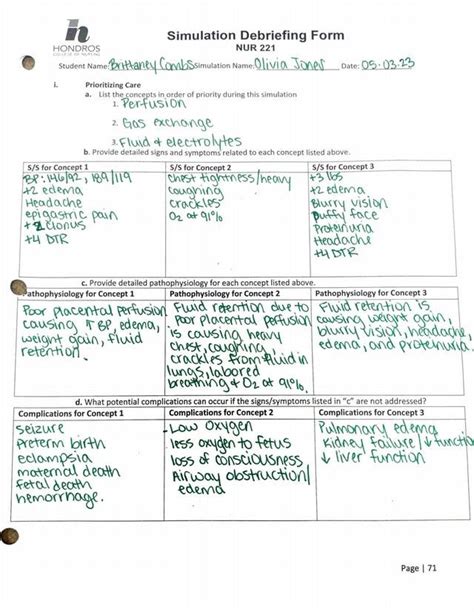 Simulation Debriefing Form
HONDROS
COLLEGE OF NURSING
NUR 221
Student Name: Brittaney Combs Simulation Name: Olivia Jones Date: 05.03.23
i. Prioritizing Care
a. List the concepts in order of priority during this simulation
1. Perfusion
2. Gas exchange
3. Fluid & electrolytes
b. Provide detailed signs and symptoms related to each concept listed above.
S/S for Concept 1
BP: 146/92, 189/119
+2 edema
Headache
epigastric pain
+2 clonus
+4 DTR
S/S for Concept 2
Chest tightness/heavy
coughing
crackles
O2 at 91%
S/S for Concept 3
+3 lbs
+2 edema
Blurry vision
puffy face
Proteinuria
Headache
+4 DTR
c. Provide detailed pathophysiology for each concept listed above.
Pathophysiology for Concept 1
Poor placental perfusion
causing ↑ BP, edema,
weight gain, fluid
retention.
Pathophysiology for Concept 2
Fluid retention due to
Poor placental perfusion
is causing heavy
chest, coughing,
crackles from fluid in
lungs, labored
breathing & O2 at 91%.
Pathophysiology for Concept 3
Fluid retention is
causing weight gain,
blurry vision, headache,
edema, and proteinuria.
d. What potential complications can occur if the signs/symptoms listed in "c" are not addressed?
Complications for Concept 1
seizure
Preterm birth
eclampsia
maternal death
fetal death
hemorrhage.
Complications for Concept 2
Low Oxygen
less oxygen to fetus
loss of consciousness
Airway obstruction/
edema
Complications for Concept 3
Pulmonary edema
kidney failure/↓ function
↓ liver function
Page | 71